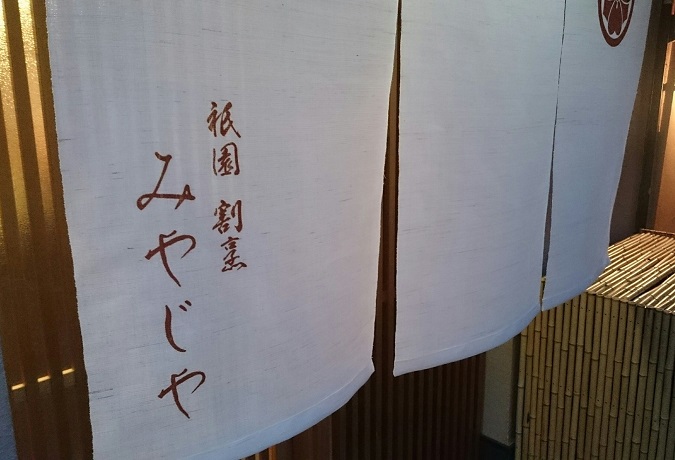 祇園 割烹
みやじや